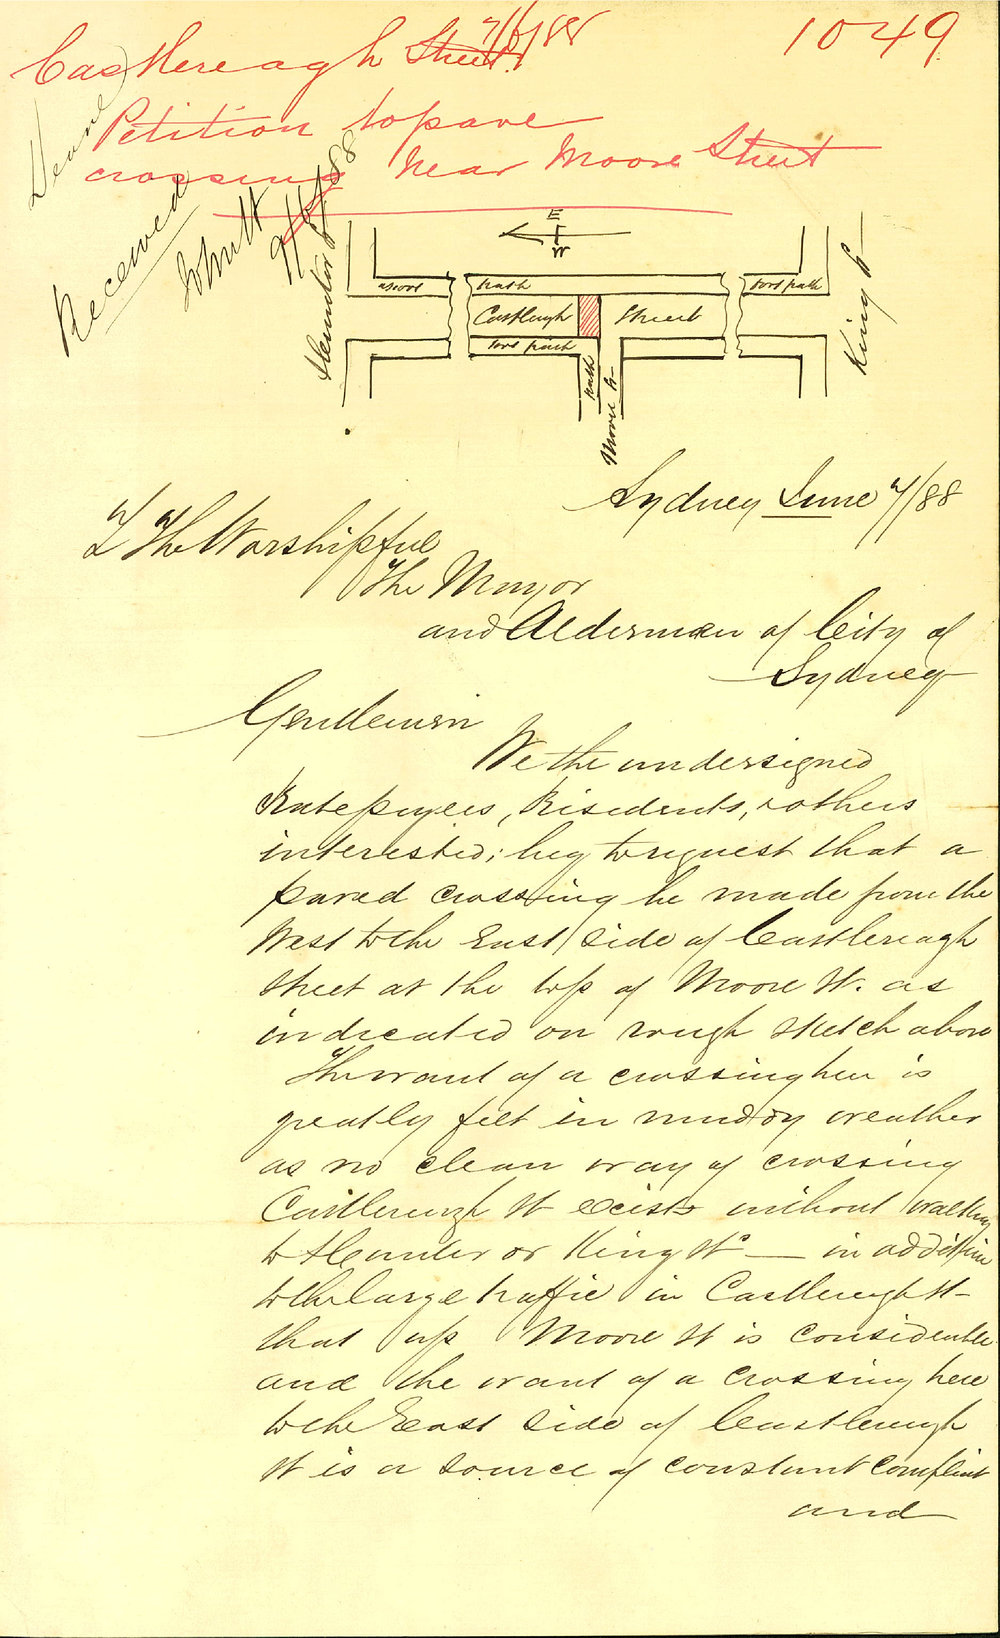 7/6/88
1049
Castlereagh Street
Petition to pave
crossing near Moore Street
Received
9/6/88
E
W
Hunter St
path
foot path
Castlereagh Street
foot path
path
Moore St
King St
Sydney June 7/88
To The Worshipful
The Mayor
and Aldermen of City of
Sydney
Gentlemen
We the undersigned
Ratepayers, Residents, & others
interested; beg to request that a
paved crossing be made from the
West to the East side of Castlereagh
Street at the top of Moore St. as
indicated on rough sketch above
The want of a crossing here is
greatly felt in muddy weather
as no clean way of crossing
Castlereagh St exists without walking
to Hunter or King Sts — in addition
to the large traffic in Castlereagh St
that up Moore St is considerable
and the want of a crossing here
to the East side of Castlereagh
St is a source of constant complaint
and